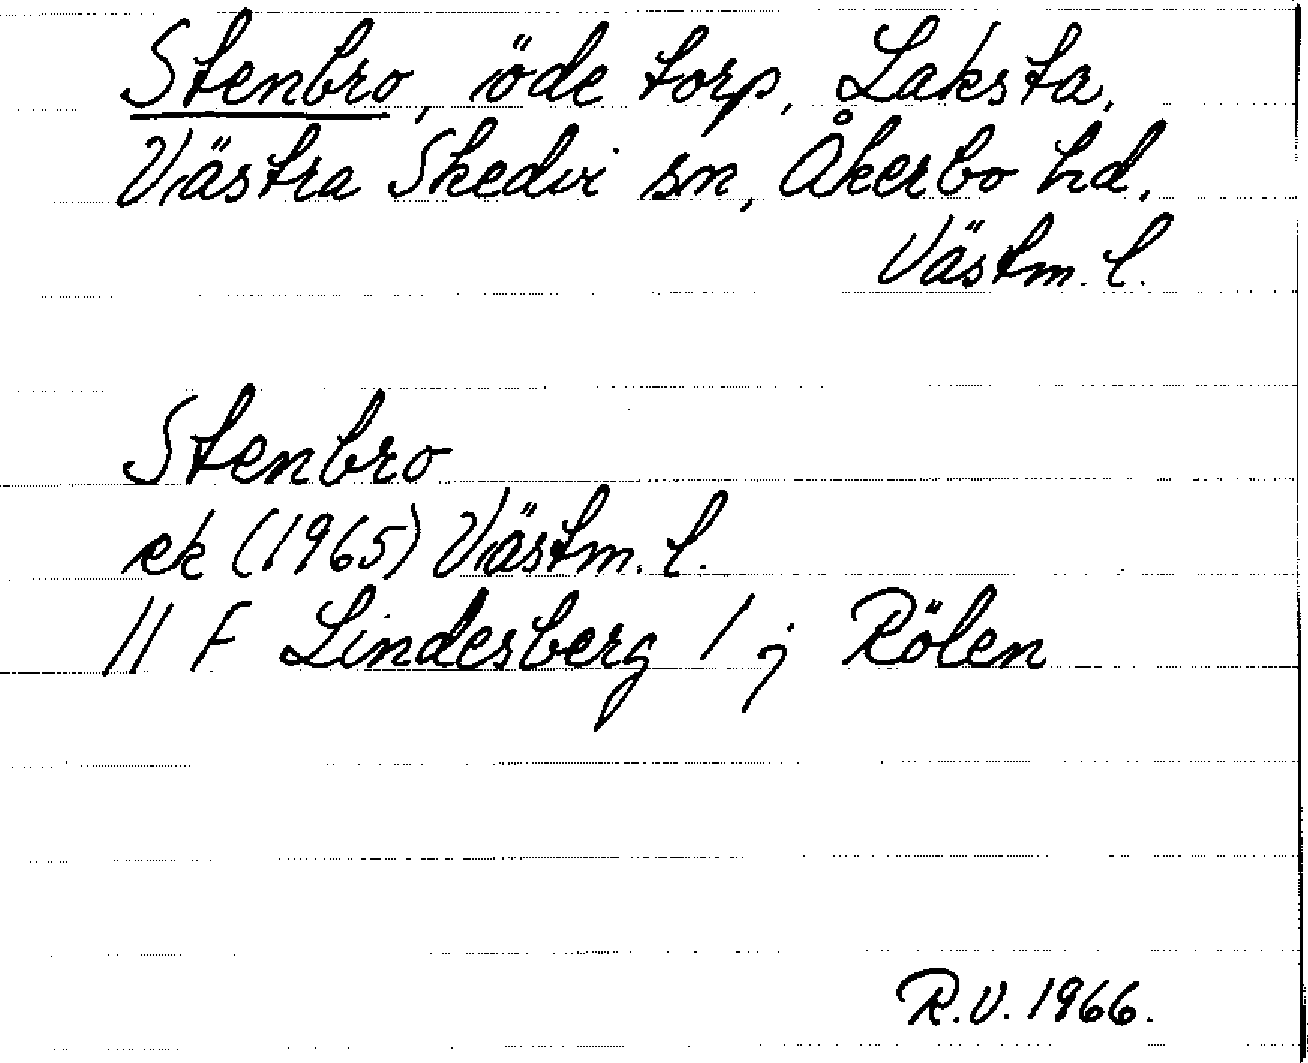 Stenbro, öde torp, Laksta,
Västra Skedvi sn, Åkerbo hd.
Västm. l.
Stenbro
ek (1965) Västm. l.
11 F Lindesberg 1 j Rölen
R.V. 1966.